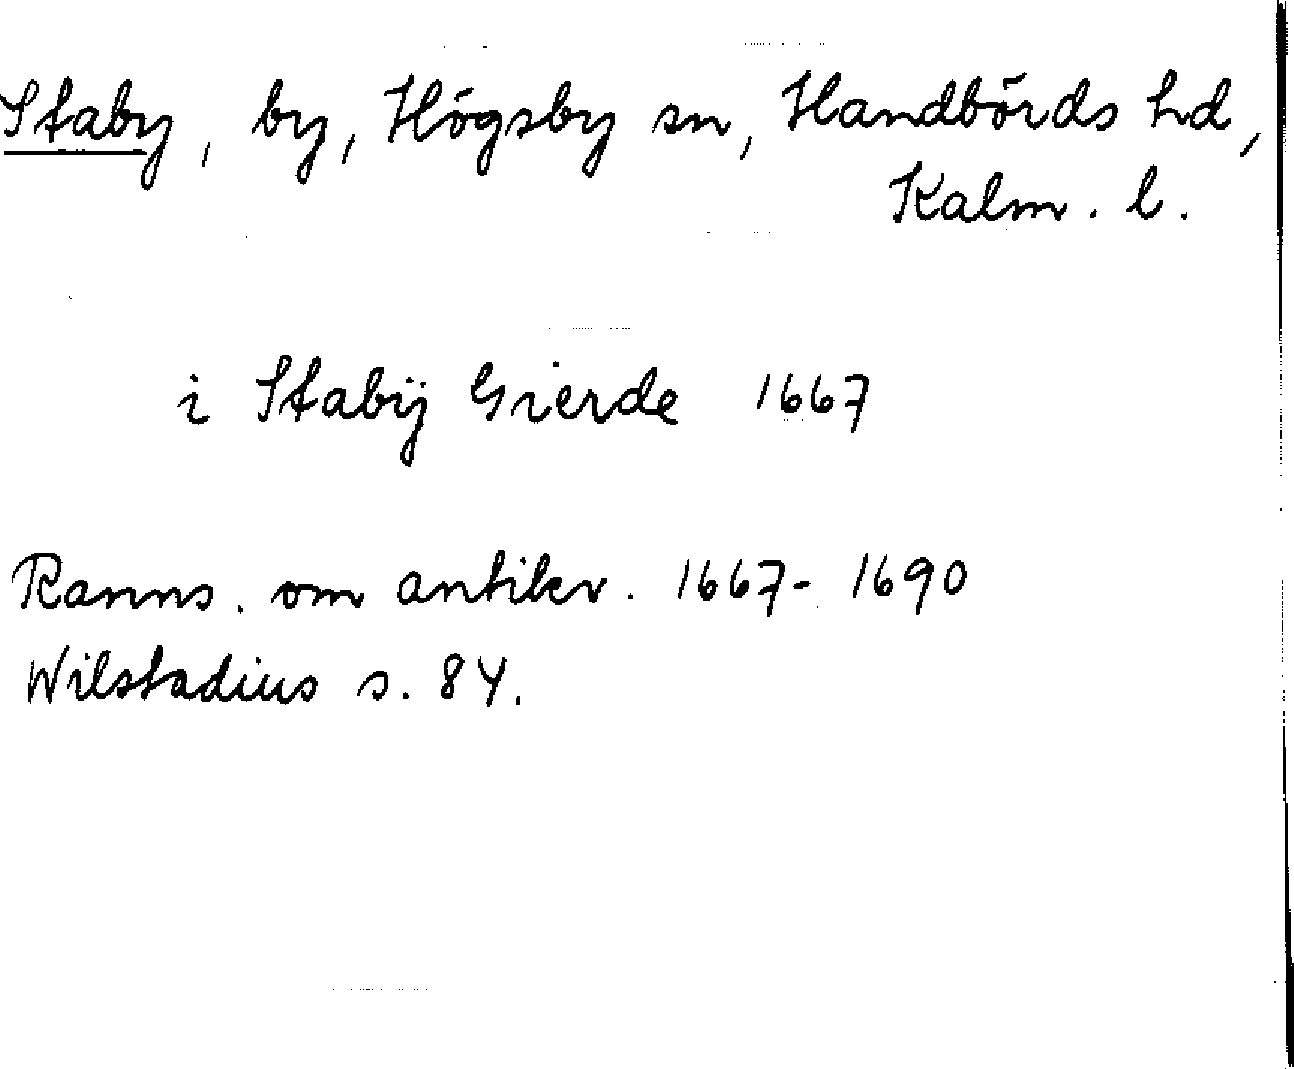 Staby, by, Högsby sn, Handbörds hd,
Kalm. l.
i Stabÿ Gierde 1667
Ranns. om antikv. 1667-1690
Wilstadius s. 84.